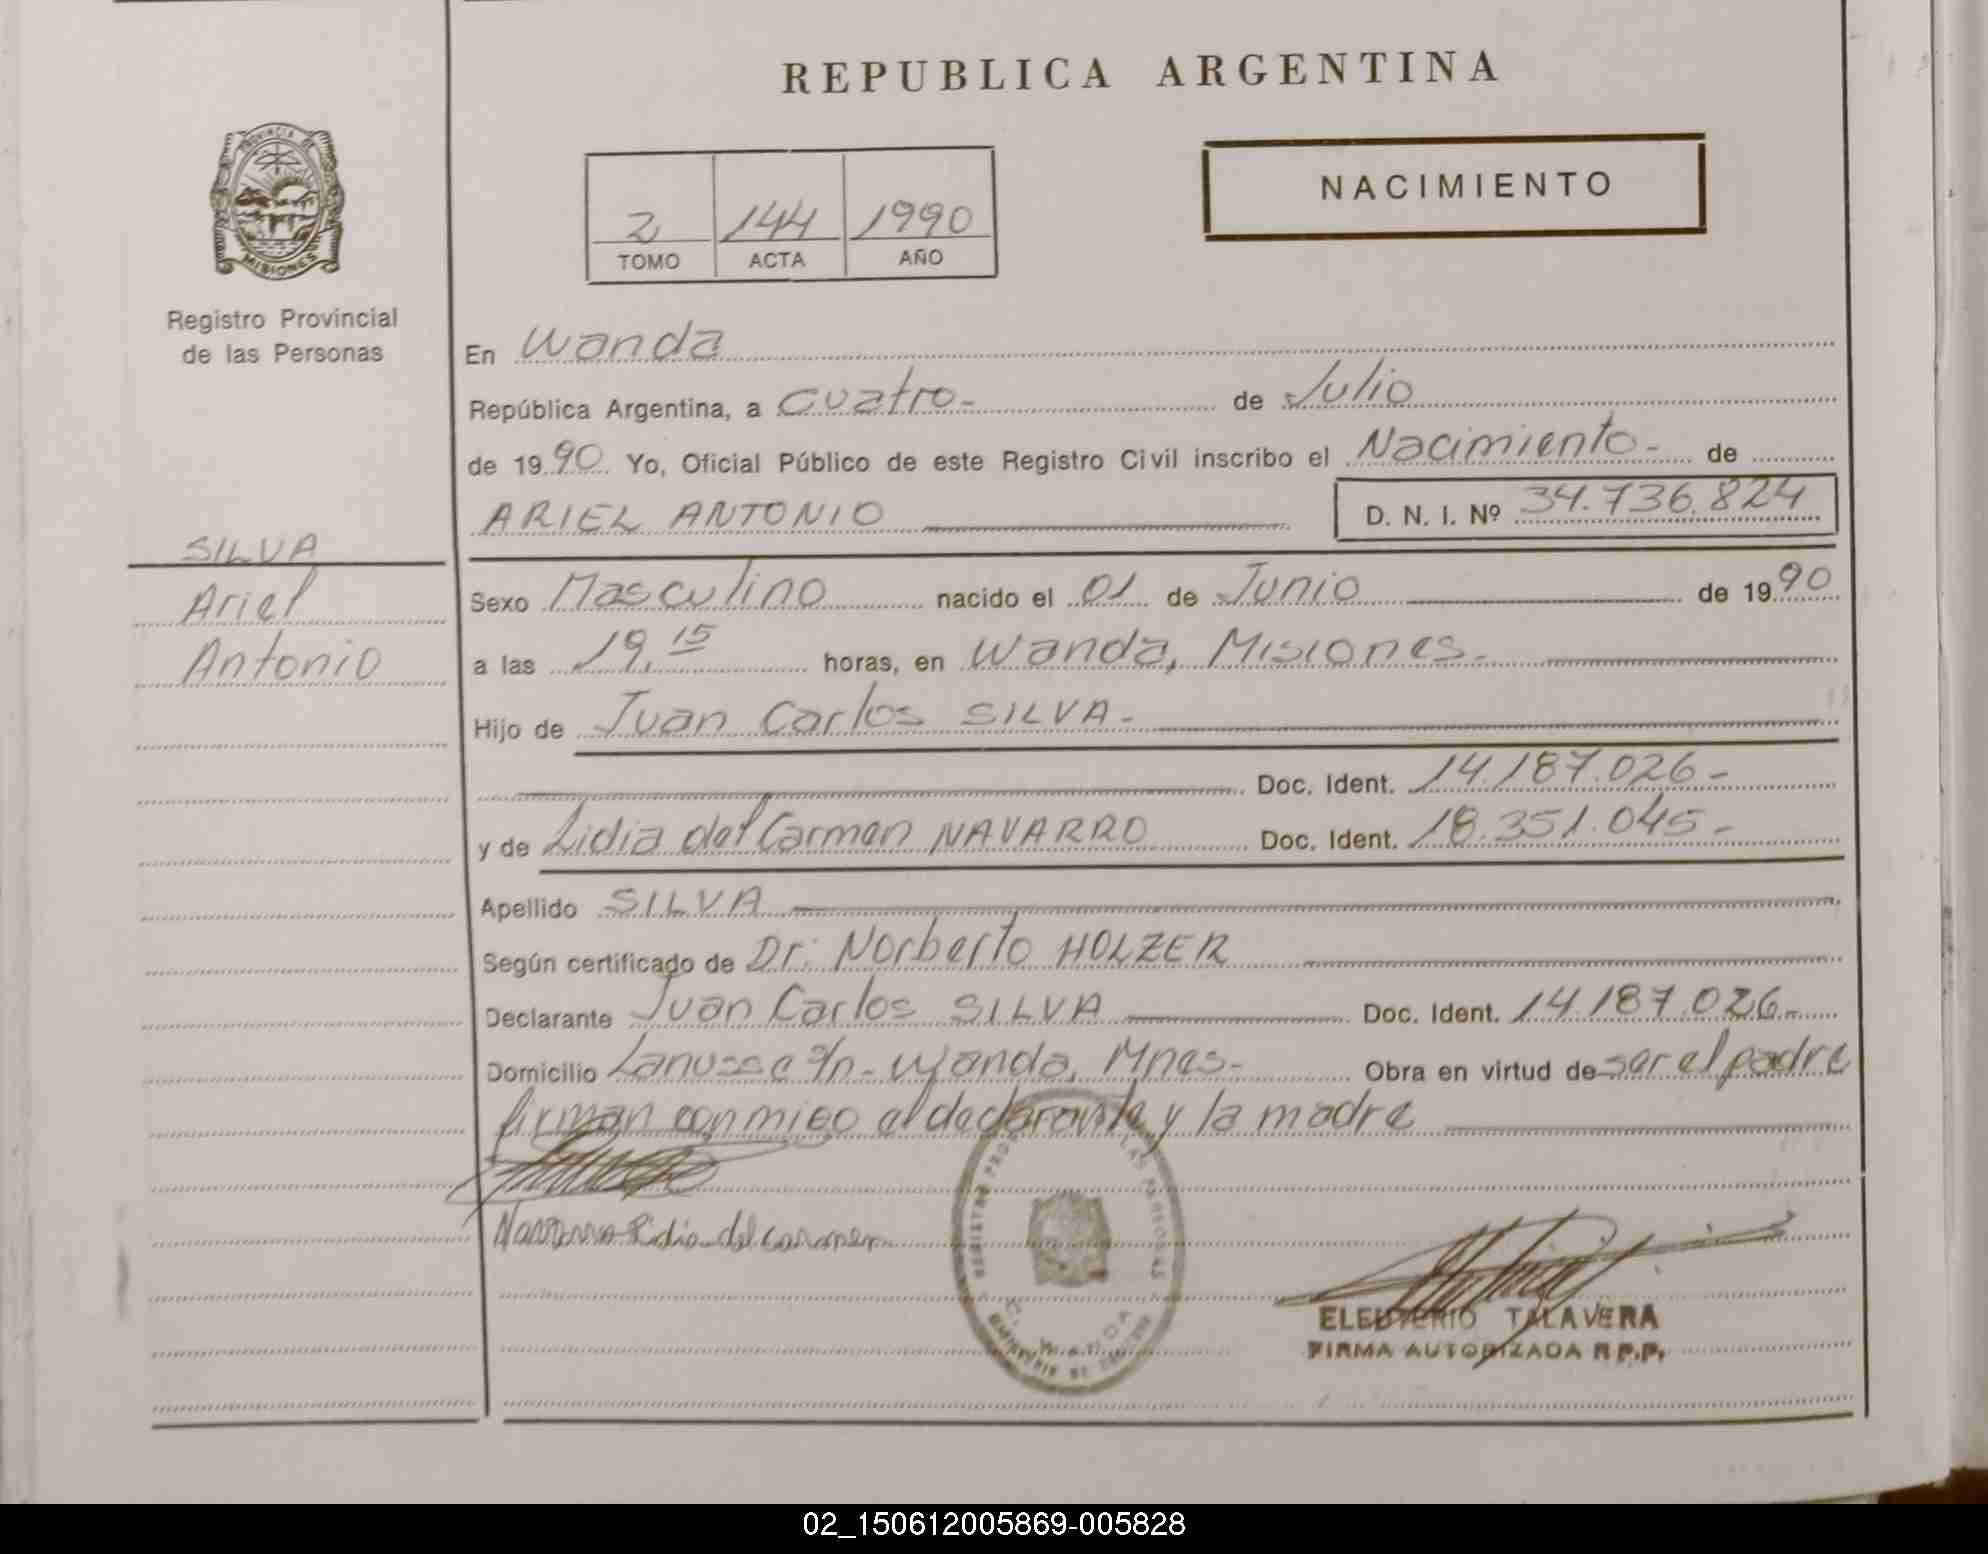 REPUBLICA ARGENTINA
NACIMIENTO
2 144 1990
TOMO ACTA AÑO
PROVINCIA DE
MISIONES
Registro Provincial
de las Personas
En Wanda
República Argentina, a Cuatro- de Julio
de 1990 Yo, Oficial Público de este Registro Civil inscribo el Nacimiento- de
ARIEL ANTONIO D. N. I. Nº 34.736.824
SILVA
Ariel
Antonio
Sexo Masculino nacido el 01 de Junio de 1990
a las 19,15 horas, en Wanda, Misiones.-
Hijo de Juan Carlos SILVA.-
Doc. Ident. 14.187.026-
y de Lidia del Carmen NAVARRO Doc. Ident. 18.351.045-
Apellido SILVA
Según certificado de Dr: Norberto HOLZER
Declarante Juan Carlos SILVA Doc. Ident. 14.187.026-
Domicilio Lanusse s/n- Wanda, Mnes- Obra en virtud de ser el padre
firman conmigo el declarante y la madre
Navarro Lidia del carmen
ELEUTERIO TALAVERA
FIRMA AUTORIZADA R.P.P.
02_150612005869-005828